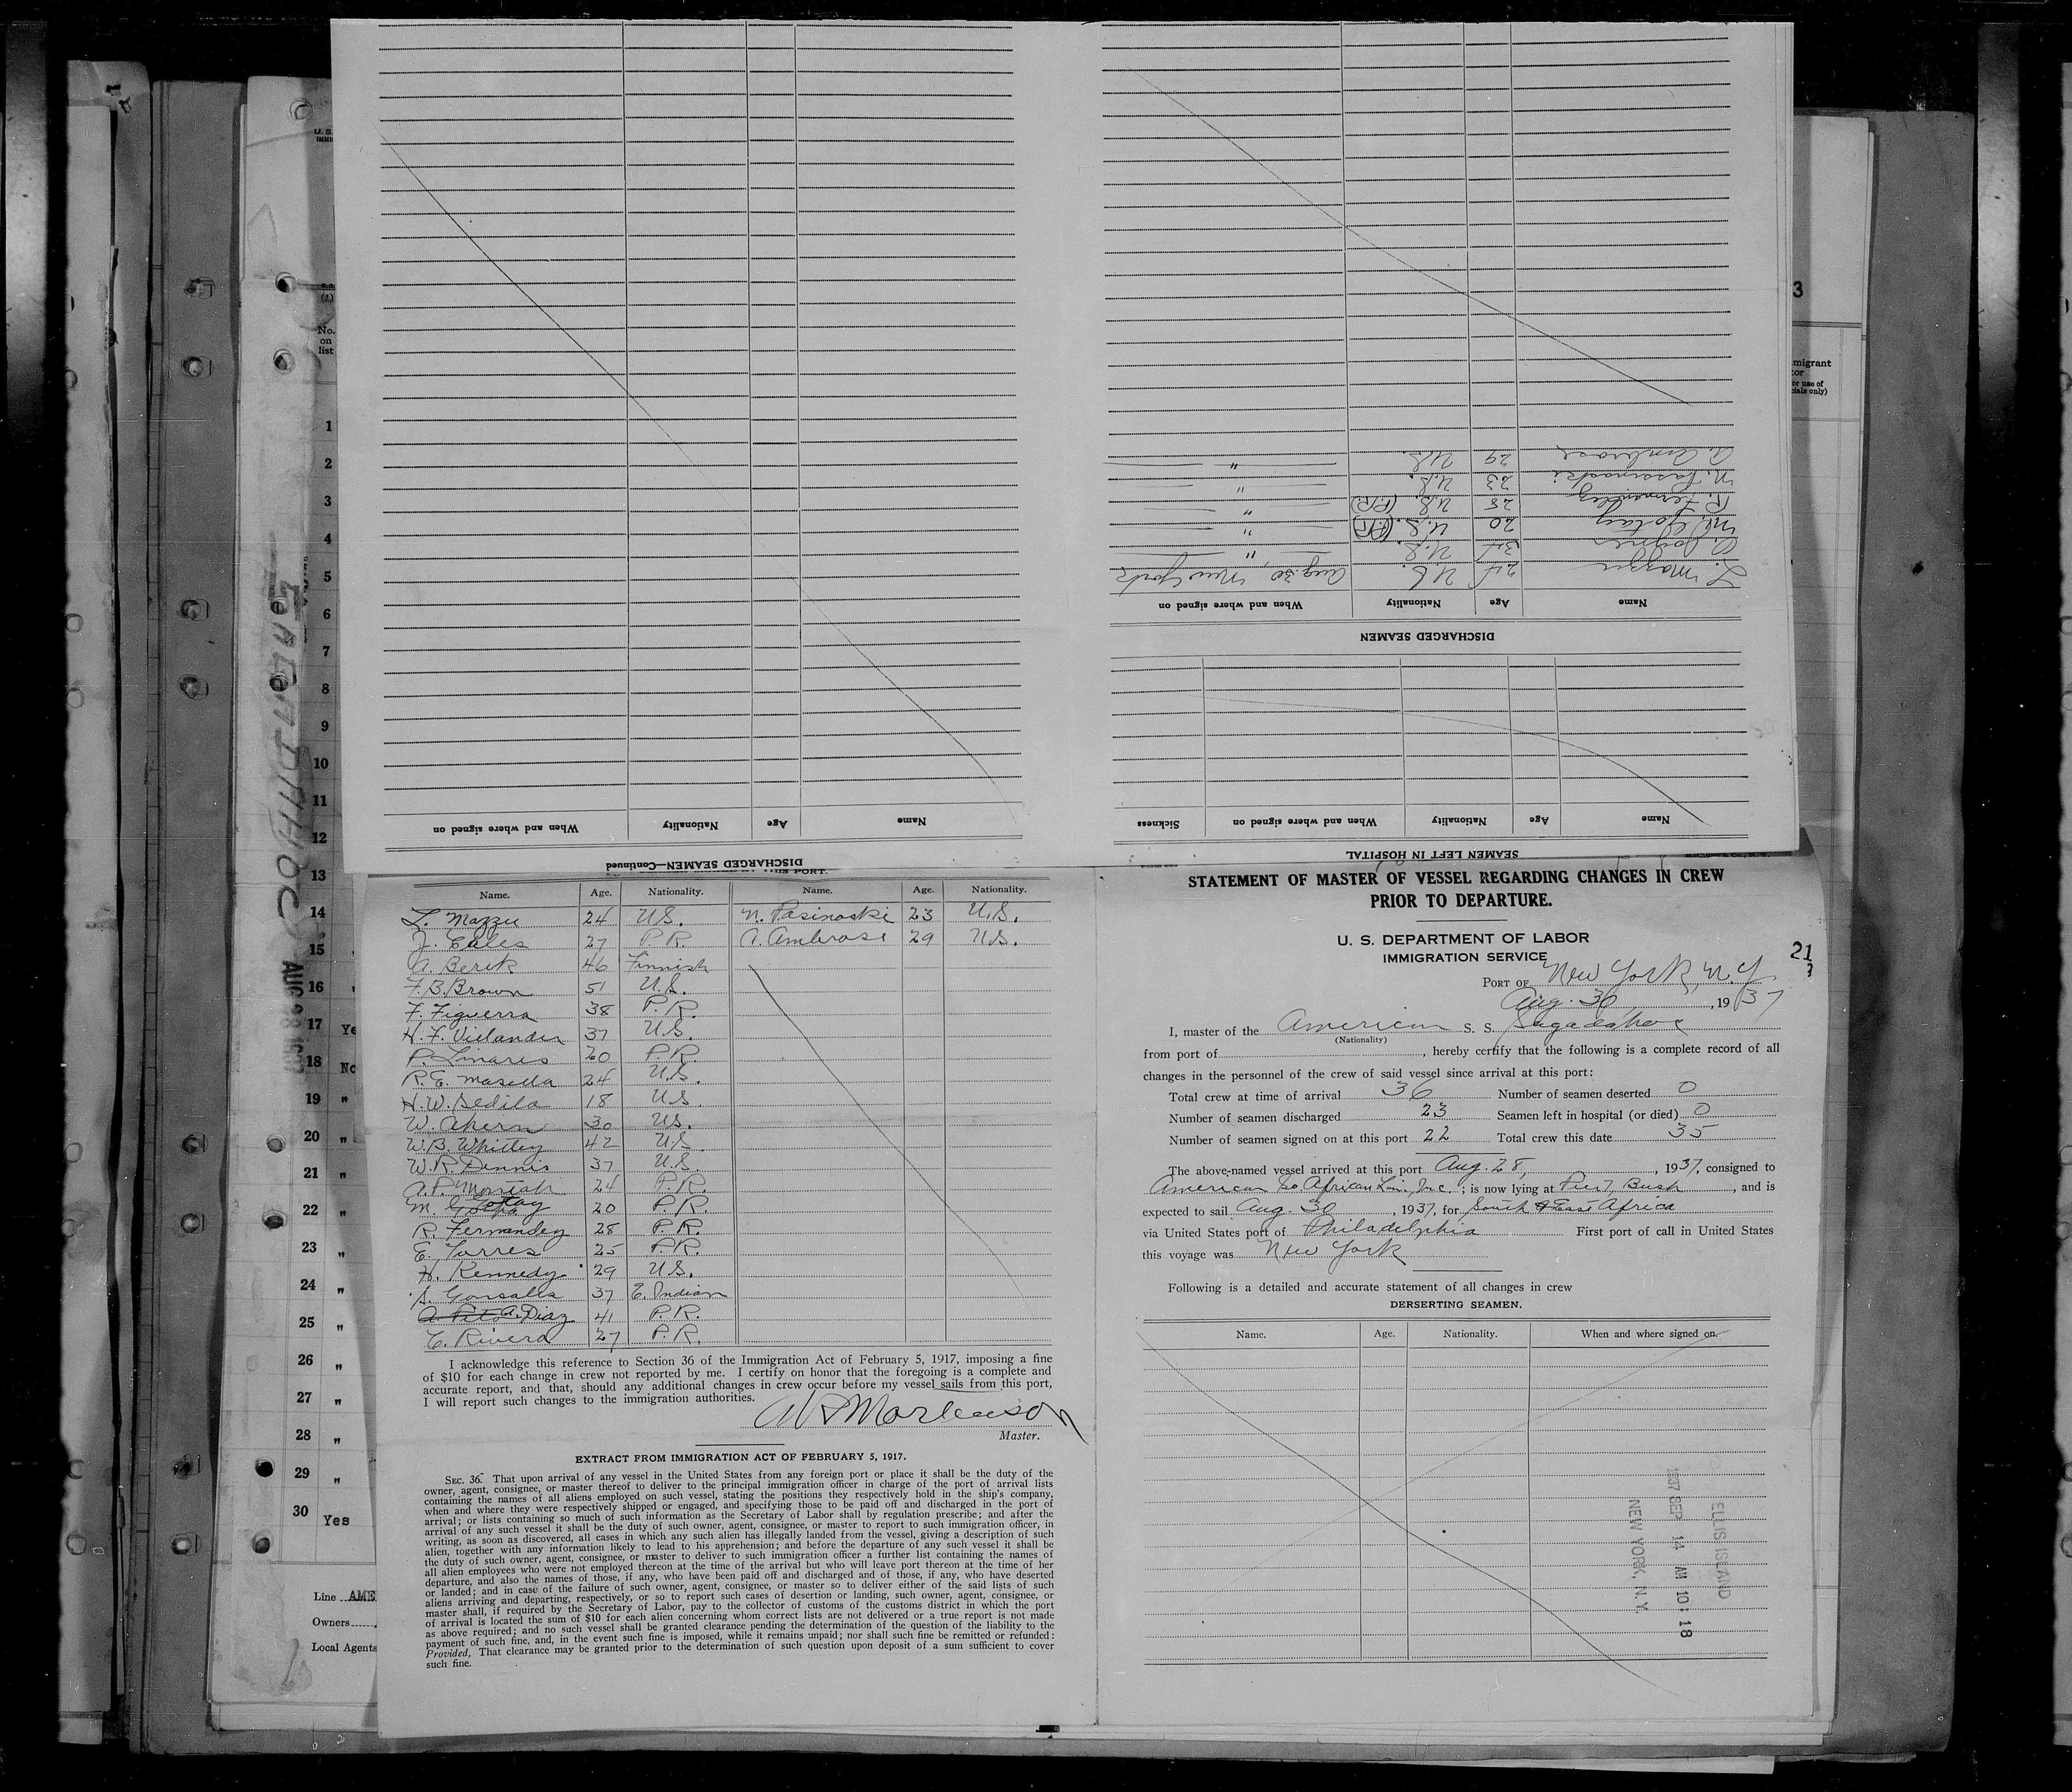 DISCHARGED SEAMEN—Continued
Name Age Nationality When and where signed on
SEAMEN LEFT IN HOSPITAL
Name Age Nationality When and where signed on Sickness
DISCHARGED SEAMEN
Name Age Nationality When and where signed on
L. Mazzu 24 U.S. Aug. 30, New York
34 U.S. "
M. Gotay 20 U.S. (P.R.) "
R. Fernandez 28 U.S. (P.R.) "
N. Pasinoski 23 U.S. "
A. Ambrose 29 U.S. "
THIS PORT.
Name. Age. Nationality. Name. Age. Nationality.
L. Mazzu 24 U.S. N. Pasinoski 23 U.S.
J. Eales 27 P.R. A. Ambrose 29 U.S.
A. Berik 46 Finnish
F.B. Brown 51 U.S.
F. Figuerra 38 P.R.
H. F. Vielander 37 U.S.
P. Linares 20 P.R.
R.E. Masella 24 U.S.
H.W. Sedila 18 U.S.
W. Ahern 30 U.S.
W.B. Whitley 42 U.S.
W.R. Dennis 37 U.S.
A.P. 24 P.R.
M. Gotay 20 P.R.
R. Fernandez 28 P.R.
E. Torres 25 P.R.
H. Kennedy 29 U.S.
S. Gonsalls 37 E. Indian
A. Diaz 41 P.R.
E. Rivera 27 P.R.
I acknowledge this reference to Section 36 of the Immigration Act of February 5, 1917, imposing a fine
of $10 for each change in crew not reported by me. I certify on honor that the foregoing is a complete and
accurate report, and that, should any additional changes in crew occur before my vessel sails from this port,
I will report such changes to the immigration authorities.
Mortenson
Master.
EXTRACT FROM IMMIGRATION ACT OF FEBRUARY 5, 1917.
SEC. 36. That upon arrival of any vessel in the United States from any foreign port or place it shall be the duty of the
owner, agent, consignee, or master thereof to deliver to the principal immigration officer in charge of the port of arrival lists
containing the names of all aliens employed on such vessel, stating the positions they respectively hold in the ship's company,
when and where they were respectively shipped or engaged, and specifying those to be paid off and discharged in the port of
arrival; or lists containing so much of such information as the Secretary of Labor shall by regulation prescribe; and after the
arrival of any such vessel it shall be the duty of such owner, agent, consignee, or master to report to such immigration officer, in
writing, as soon as discovered, all cases in which any such alien has illegally landed from the vessel, giving a description of such
alien, together with any information likely to lead to his apprehension; and before the departure of any such vessel it shall be
the duty of such owner, agent, consignee, or master to deliver to such immigration officer a further list containing the names of
all alien employees who were not employed thereon at the time of the arrival but who will leave port thereon at the time of her
departure, and also the names of those, if any, who have been paid off and discharged and of those, if any, who have deserted
or landed; and in case of the failure of such owner, agent, consignee, or master so to deliver either of the said lists of such
aliens arriving and departing, respectively, or so to report such cases of desertion or landing, such owner, agent, consignee, or
master shall, if required by the Secretary of Labor, pay to the collector of customs of the customs district in which the port
of arrival is located the sum of $10 for each alien concerning whom correct lists are not delivered or a true report is not made
as above required; and no such vessel shall be granted clearance pending the determination of the question of the liability to the
payment of such fine, and, in the event such fine is imposed, while it remains unpaid; nor shall such fine be remitted or refunded:
Provided, That clearance may be granted prior to the determination of such question upon deposit of a sum sufficient to cover
such fine.
STATEMENT OF MASTER OF VESSEL REGARDING CHANGES IN CREW
PRIOR TO DEPARTURE.
U. S. DEPARTMENT OF LABOR
IMMIGRATION SERVICE
21
PORT OF New York, N.Y.
Aug. 30, 1937
I, master of the American S. S. Sagadahoc
(Nationality)
from port of , hereby certify that the following is a complete record of all
changes in the personnel of the crew of said vessel since arrival at this port:
Total crew at time of arrival 36 Number of seamen deserted 0
Number of seamen discharged 23 Seamen left in hospital (or died) 0
Number of seamen signed on at this port 22 Total crew this date 35
The above-named vessel arrived at this port Aug. 28, , 1937, consigned to
American So. African Line, Inc. ; is now lying at Pier 7, Bush , and is
expected to sail Aug. 30 , 1937, for South & East Africa
via United States port of Philadelphia First port of call in United States
this voyage was New York
Following is a detailed and accurate statement of all changes in crew
DERSERTING SEAMEN.
Name. Age. Nationality. When and where signed on.
ELLIS ISLAND
1937 SEP 14 AM 10:18
NEW YORK, N. Y.
No. on list
1
2
3
4
5
6
7
8
9
10
11
12
13
14
15
16
17 Ye
18 No
19 "
20 "
21 "
22 "
23 "
24 "
25 "
26 "
27 "
28 "
29 "
30 Yes
Line AME
Owners
Local Agents
3